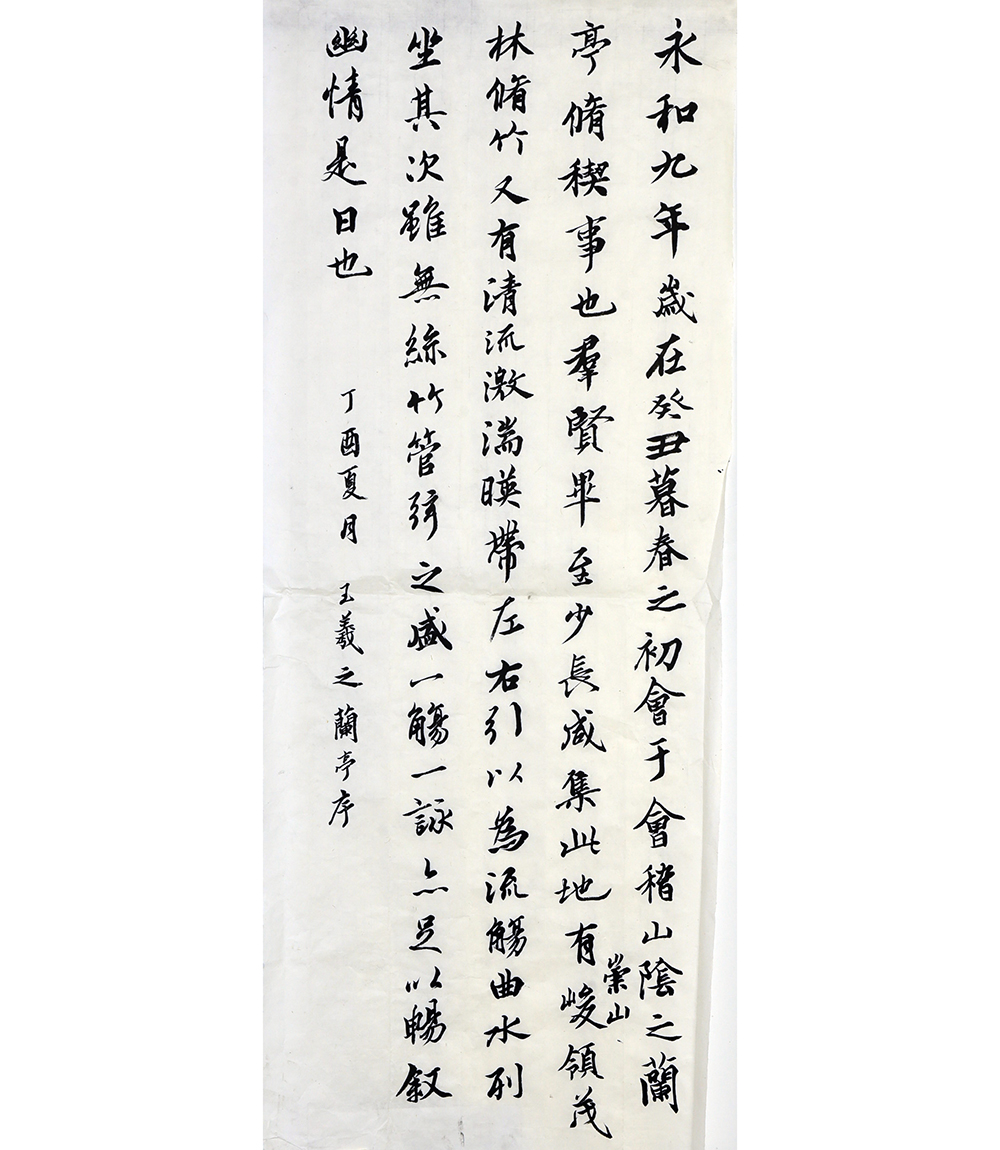 永和九年歲在癸丑暮春之初會于會稽山陰之蘭
亭脩稧事也羣賢畢至少長咸集此地有
崇山
峻領茂
林脩竹又有清流激湍暎帶左右引以為流觴曲水列
坐其次雖無絲竹管弦之盛一觴一詠亦足以暢叙
幽情是日也
丁酉夏月 王羲之蘭亭序